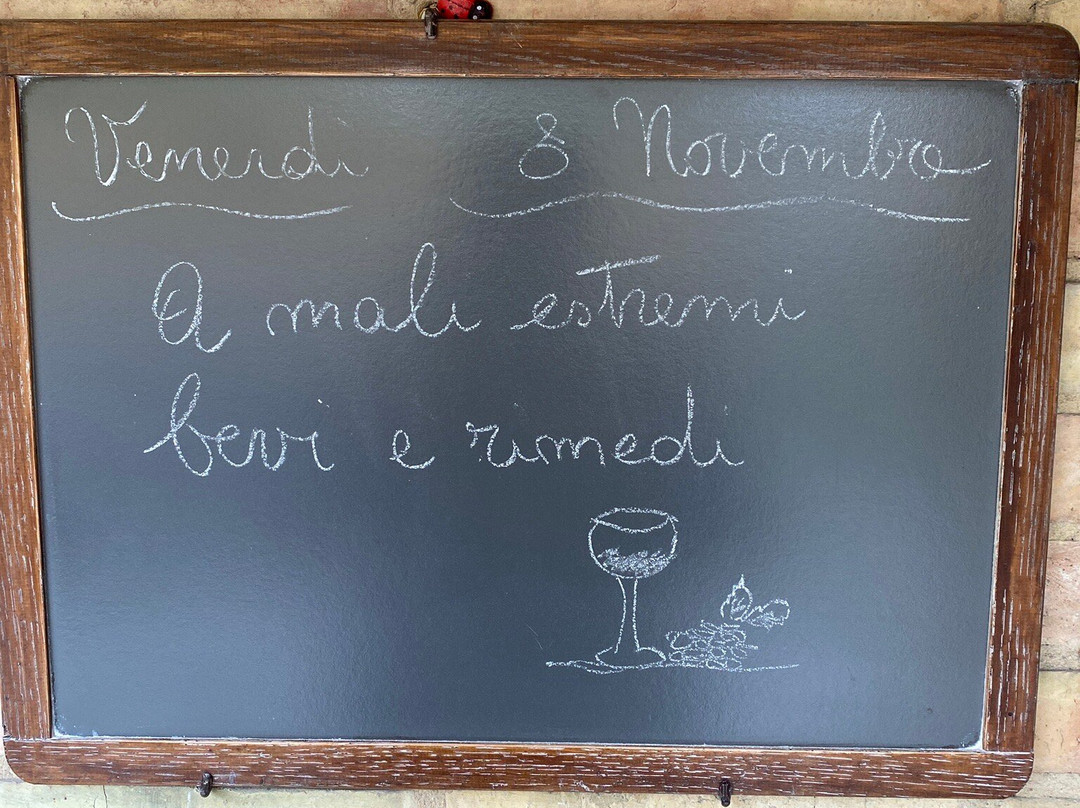 Venerdì 8 Novembre
A mali estremi
bevi e rimedi